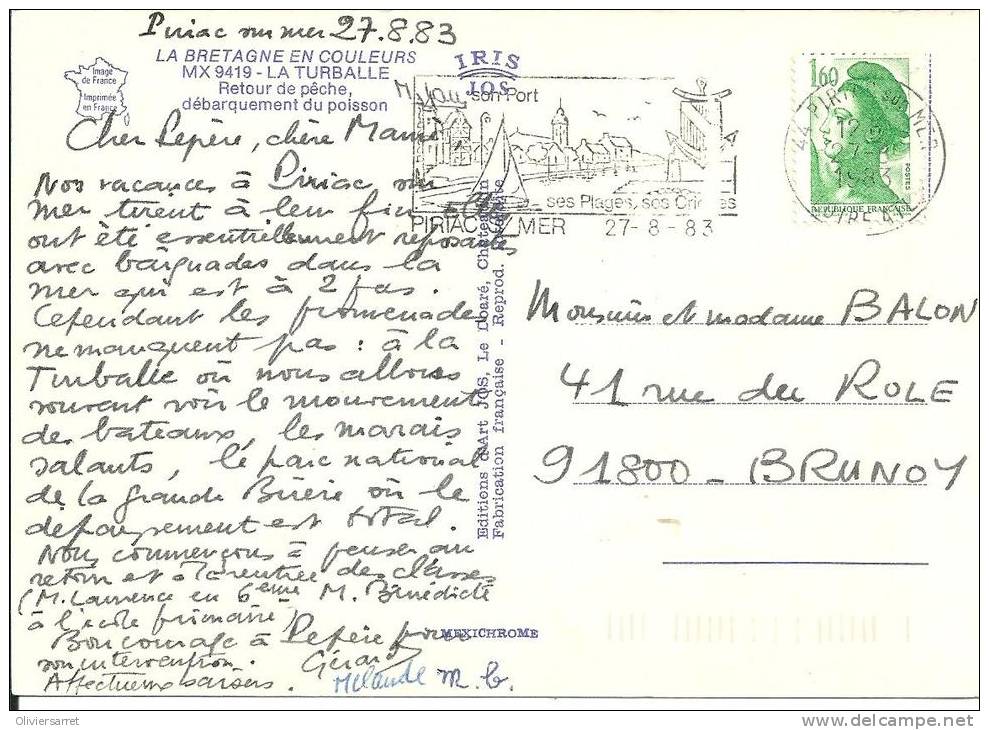 Piriac sur mer 27.8.83
LA BRETAGNE EN COULEURS
MX 9419 - LA TURBALLE
Retour de pêche,
débarquement du poisson
Image
de France
Imprimée
en France
IRIS
JOS
son Port
ses Plages, ses Criques
PIRIAC S/ MER 27-8-83
1,60
POSTES
REPUBLIQUE FRANÇAISE
Cher Pepère, chère Mamie,
Nos vacances à Piriac sur
mer tirent à leur fin
ont été essentiellement reposantes
avec baignades dans la
mer qui est à 2 pas.
Cependant les promenades
ne manquent pas : à la
Turballe où nous allons
souvent voir le mouvement
des bateaux, les marais
salants, le parc national
de la grande Brière où le
dépaysement est total.
Nous commençons à penser au
retour et à la rentrée des classes
(M. Laurence en 6ème M. Bénédicte
à l'école primaire)
Bon courage à Pepère pour
son intervention. Gérard
Affectueux baisers. M Claude M. B.
Editions d'Art JOS, Le Doaré, Châteaulin
Fabrication française - Reprod. interdite
MEXICHROME
Monsieur et madame BALON
41 rue du ROLE
91800 - BRUNOY
Oliviersarret
delcampe.net